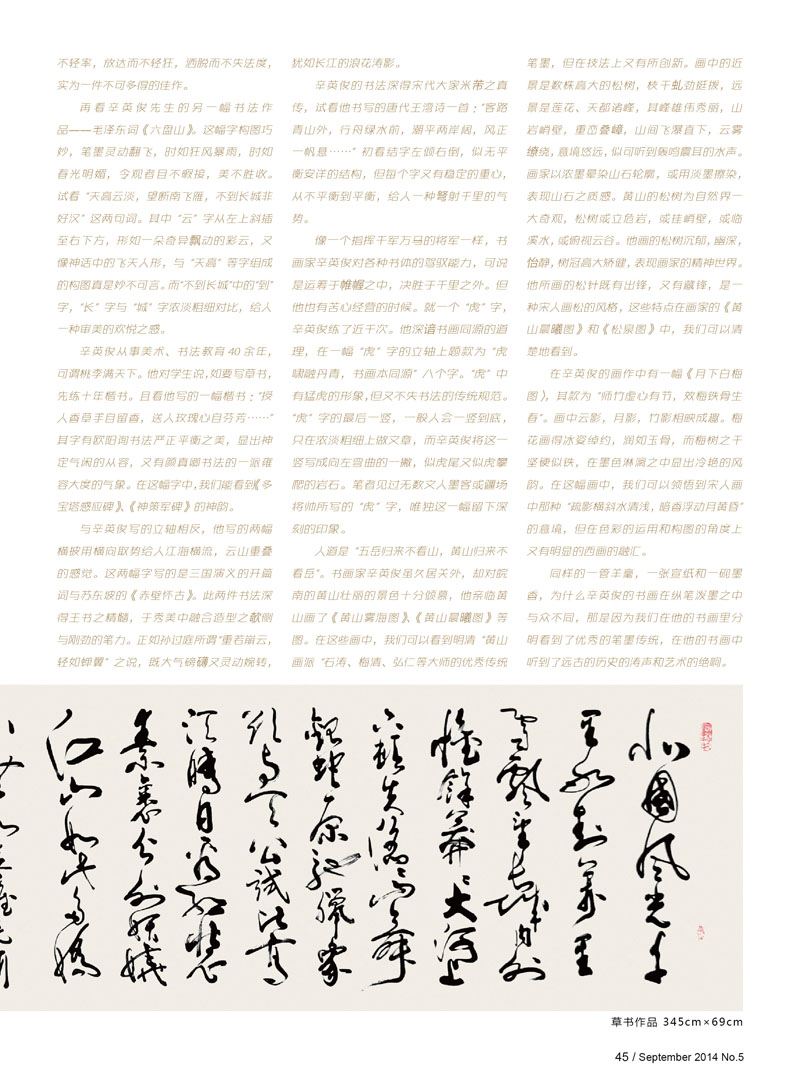 不轻率，放达而不轻狂，洒脱而不失法度，
实为一件不可多得的佳作。
再看辛英俊先生的另一幅书法作
品——毛泽东词《六盘山》。这幅字构图巧
妙，笔墨灵动翻飞，时如狂风暴雨，时如
春光明媚，令观者目不暇接，美不胜收。
试看“天高云淡，望断南飞雁，不到长城非
好汉”这两句词。其中“云”字从左上斜插
至右下方，形如一朵奇异飘动的彩云，又
像神话中的飞天人形，与“天高”等字组成
的构图真是妙不可言。而“不到长城”中的“到”
字，“长”字与“城”字浓淡粗细对比，给人
一种审美的欢悦之感。
辛英俊从事美术、书法教育40余年，
可谓桃李满天下。他对学生说，如要写草书，
先练十年楷书。且看他写的一幅楷书：“授
人香草手自留香，送人玫瑰心自芬芳……”
其字有欧阳询书法严正平衡之美，显出神
定气闲的从容，又有颜真卿书法的一派雍
容大度的气象。在这幅字中，我们能看到《多
宝塔感应碑》、《神策军碑》的神韵。
与辛英俊写的立轴相反，他写的两幅
横披用横向取势给人江海横流，云山重叠
的感觉。这两幅字写的是三国演义的开篇
词与苏东坡的《赤壁怀古》。此两件书法深
得王书之精髓，于秀美中融合造型之欹侧
与刚劲的笔力。正如孙过庭所谓“重若崩云，
轻如蝉翼”之说，既大气磅礴又灵动婉转，
犹如长江的浪花涛影。
辛英俊的书法深得宋代大家米芾之真
传，试看他书写的唐代王湾诗一首：“客路
青山外，行舟绿水前，潮平两岸阔，风正
一帆悬……”初看结字左倾右倒，似无平
衡安详的结构，但每个字又有稳定的重心，
从不平衡到平衡，给人一种弩射千里的气
势。
像一个指挥千军万马的将军一样，书
画家辛英俊对各种书体的驾驭能力，可说
是运筹于帷幄之中，决胜于千里之外。但
他也有苦心经营的时候。就一个“虎”字，
辛英俊练了近千次。他深谙书画同源的道
理，在一幅“虎”字的立轴上题款为“虎
啸融丹青，书画本同源”八个字。“虎”中
有猛虎的形象，但又不失书法的传统规范。
“虎”字的最后一竖，一般人会一竖到底，
只在浓淡粗细上做文章，而辛英俊将这一
竖写成向左弯曲的一撇，似虎尾又似虎攀
爬的岩石。笔者见过无数文人墨客或疆场
将帅所写的“虎”字，唯独这一幅留下深
刻的印象。
人道是“五岳归来不看山，黄山归来不
看岳”。书画家辛英俊虽久居关外，却对皖
南的黄山壮丽的景色十分颂慕，他亲临黄
山画了《黄山雾海图》、《黄山晨曦图》等
图。在这些画中，我们可以看到明清“黄山
画派”石涛、梅清、弘仁等大师的优秀传统
笔墨，但在技法上又有所创新。画中的近
景是数株高大的松树，枝干虬劲挺拔，远
景是莲花、天都诸峰，其峰雄伟秀丽，山
岩峭壁，重峦叠嶂，山间飞瀑直下，云雾
缭绕，意境悠远，似可听到轰鸣震耳的水声。
画家以浓墨晕染山石轮廓，或用淡墨擦染，
表现山石之质感。黄山的松树为自然界一
大奇观，松树或立危岩，或挂峭壁，或临
溪水，或俯视云谷。他画的松树沉郁，幽深，
恬静，树冠高大矫健，表现画家的精神世界。
他所画的松针既有出锋，又有藏锋，是一
种宋人画松的风格，这些特点在画家的《黄
山晨曦图》和《松泉图》中，我们可以清
楚地看到。
在辛英俊的画作中有一幅《月下白梅
图》，其款为“师竹虚心有节，效梅铁骨生
春”。画中云影，月影，竹影相映成趣。梅
花画得冰姿绰约，润如玉骨，而梅树之干
坚硬似铁，在墨色淋漓之中显出冷艳的风
韵。在这幅画中，我们可以领悟到宋人画
中那种“疏影横斜水清浅，暗香浮动月黄昏”
的意境，但在色彩的运用和构图的角度上
又有明显的西画的融汇。
同样的一管羊毫，一张宣纸和一砚墨
香，为什么辛英俊的书画在纵笔泼墨之中
与众不同，那是因为我们在他的书画里分
明看到了优秀的笔墨传统，在他的书画中
听到了远古的历史的涛声和艺术的绝响。
北国风光千
里冰封万里
雪飘望长城内外
惟余莽莽大河上
下顿失滔滔山舞
银蛇原驰腊象
欲与天公试比高
须晴日看红装
素裹分外妖娆
江山如此多娇
草书作品 345cm×69cm
45 / September 2014 No.5